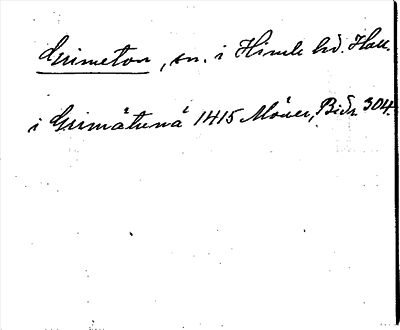 Grimeton, sn. i Himle hd. Hall.
i Grimåtunå 1415 Möller, Bidr. 304.